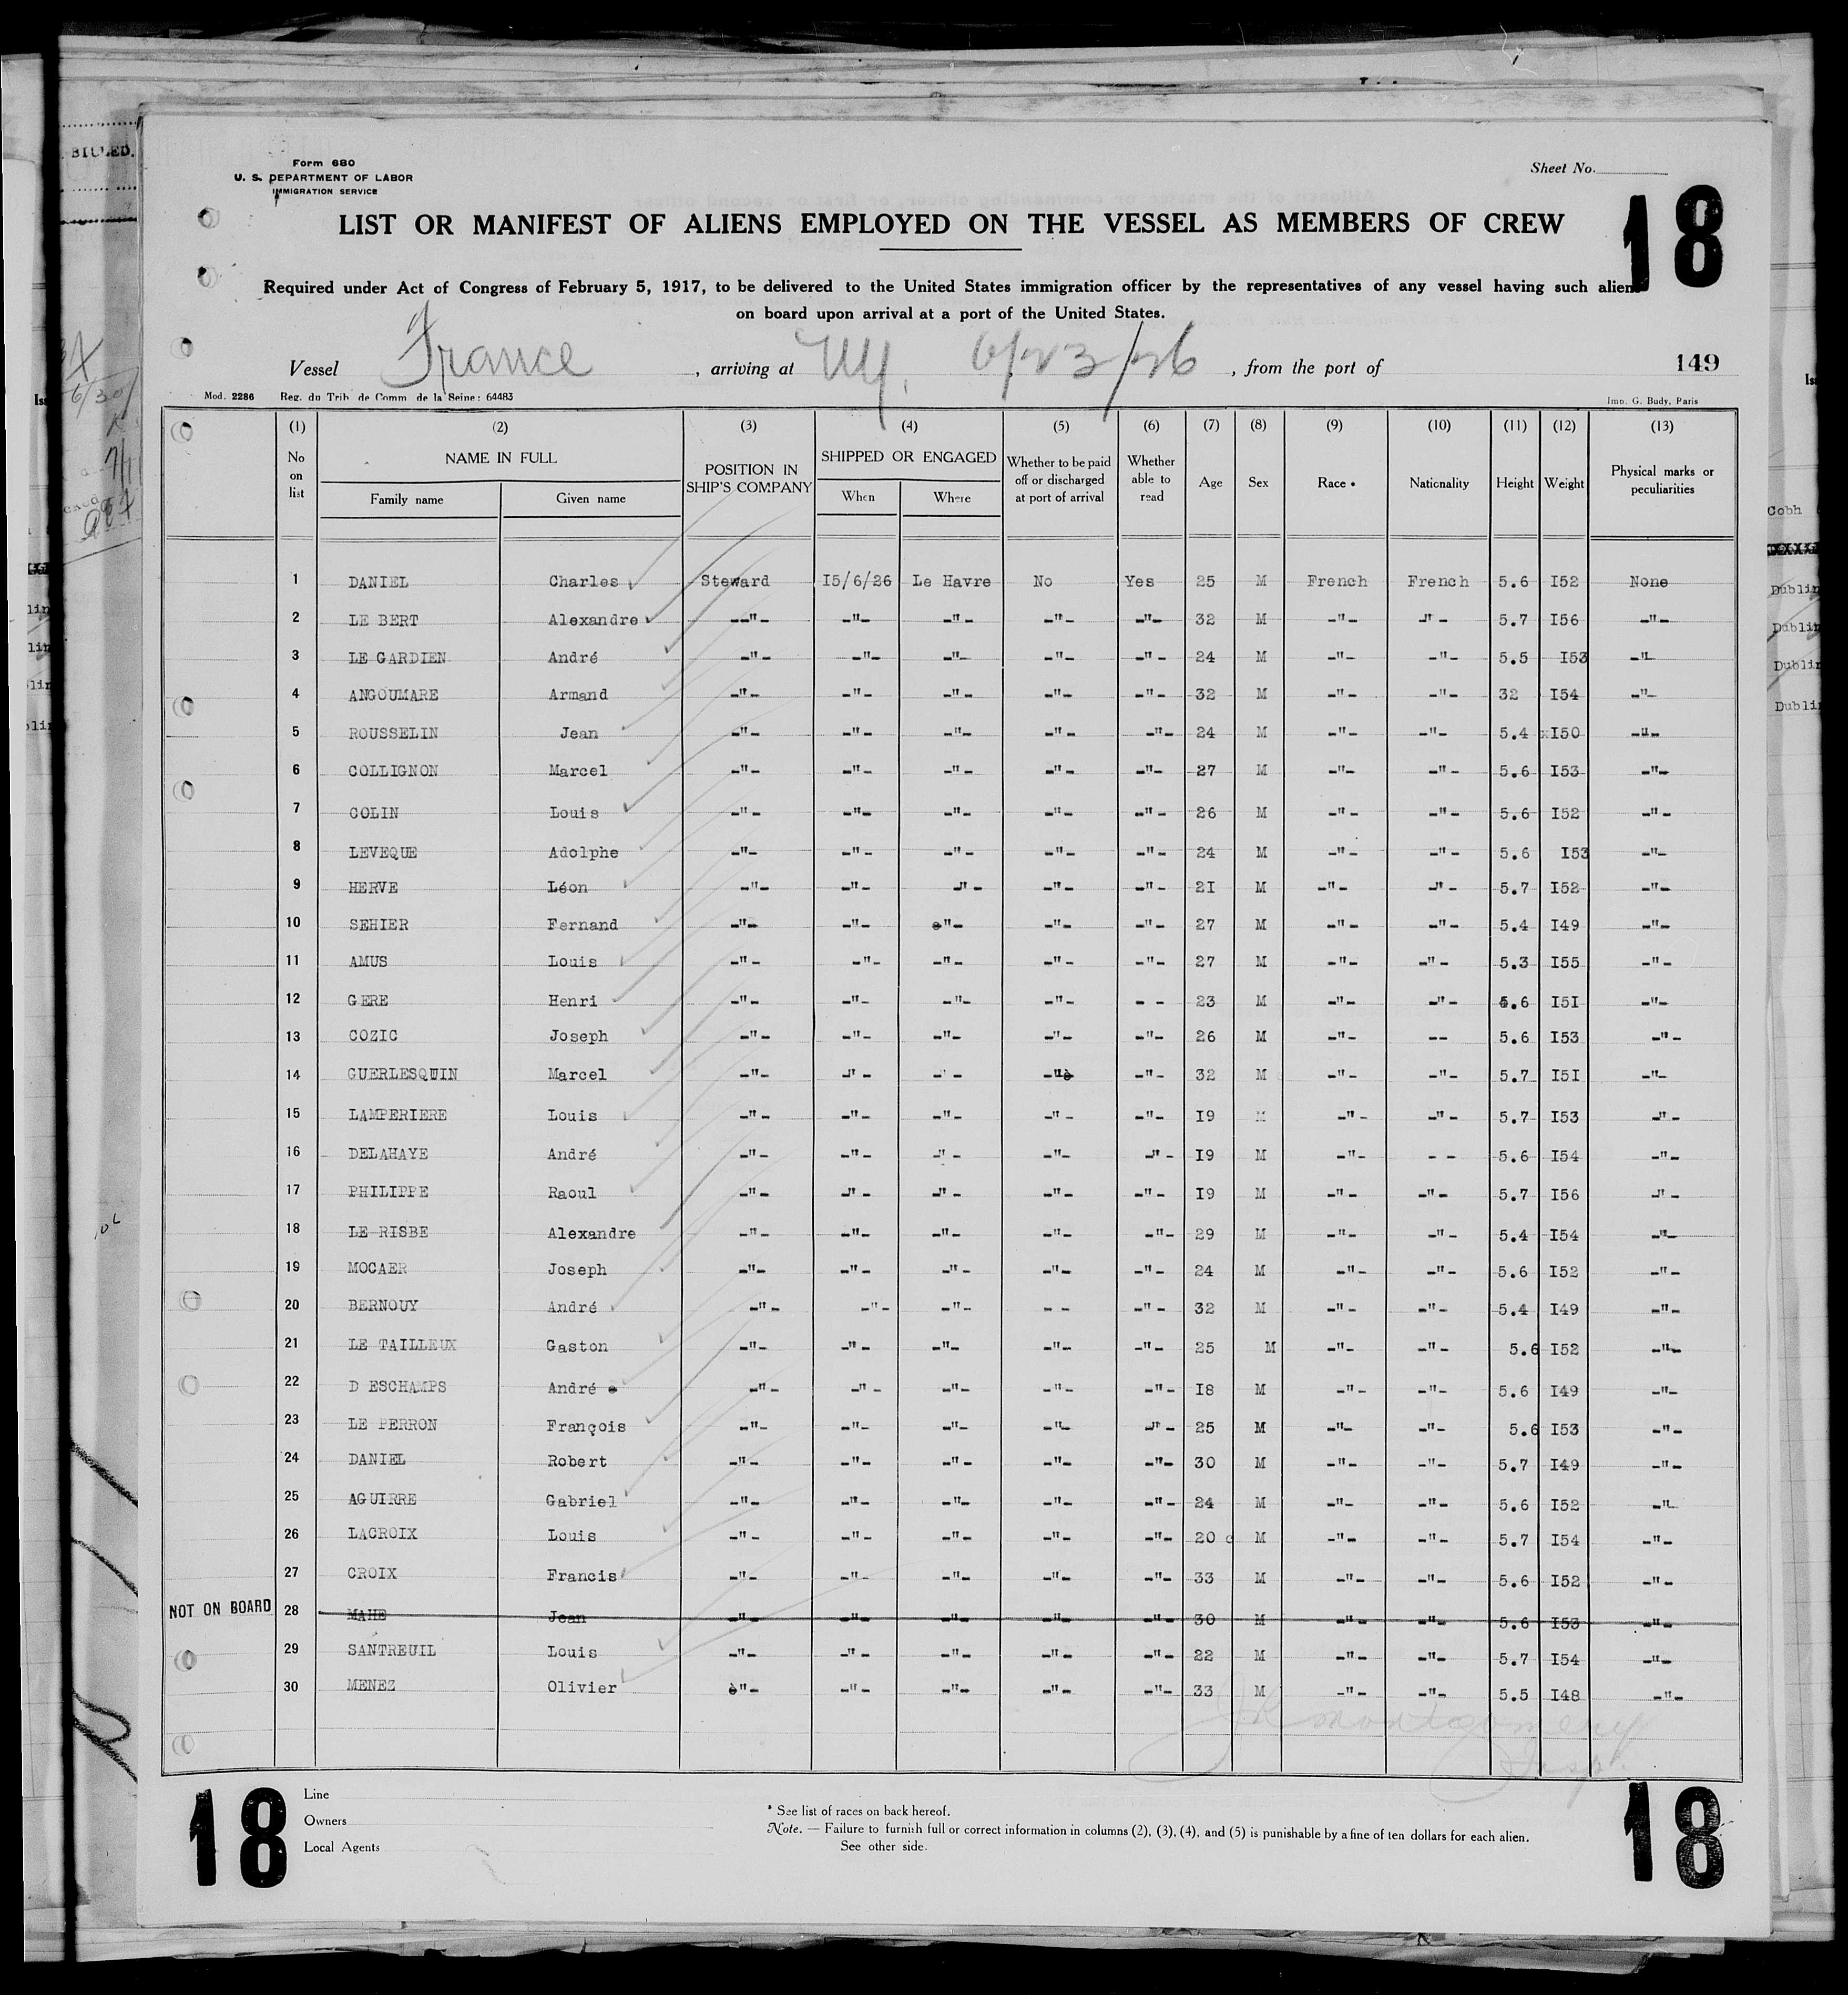 BILLED.
Form 680
U. S. DEPARTMENT OF LABOR
IMMIGRATION SERVICE
Sheet No.
18
LIST OR MANIFEST OF ALIENS EMPLOYED ON THE VESSEL AS MEMBERS OF CREW
Required under Act of Congress of February 5, 1917, to be delivered to the United States immigration officer by the representatives of any vessel having such alien
on board upon arrival at a port of the United States.
Vessel France , arriving at NY. 6/23/26 , from the port of 149
Mod. 2286 Reg. du Trib de Comm de la Seine: 64483 Imp. G. Budy, Paris
(1) (2) (3) (4) (5) (6) (7) (8) (9) (10) (11) (12) (13)
No on list NAME IN FULL POSITION IN SHIP'S COMPANY SHIPPED OR ENGAGED Whether to be paid off or discharged at port of arrival Whether able to read Age Sex Race * Nationality Height Weight Physical marks or peculiarities
Family name Given name When Where
1 DANIEL Charles Steward I5/6/26 Le Havre No Yes 25 M French French 5.6 I52 None
2 LE BERT Alexandre --"- -"- -"- -"- -"- 32 M -"- -"- 5.7 I56 -"-
3 LE GARDIEN André -"- -"- -"- -"- -"- 24 M -"- -"- 5.5 I53 -"-
4 ANGOUMARE Armand -"- -"- -"- -"- -"- 32 M -"- -"- 32 I54 -"-
5 ROUSSELIN Jean -"- -"- -"- -"- -"- 24 M -"- -"- 5.4 xI50 -"-
6 COLLIGNON Marcel -"- -"- -"- -"- -"- 27 M -"- -"- 5.6 I53 -"-
7 COLIN Louis -"- -"- -"- -"- -"- 26 M -"- -"- 5.6 I52 -"-
8 LEVEQUE Adolphe -"- -"- -"- -"- -"- 24 M -"- -"- 5.6 I53 -"-
9 HERVE Léon -"- -"- -"- -"- -"- 2I M -"- -"- 5.7 I52 -"-
10 SEHIER Fernand -"- -"- -"- -"- -"- 27 M -"- -"- 5.4 I49 -"-
11 AMUS Louis -"- -"- -"- -"- -"- 27 M -"- -"- 5.3 I55 -"-
12 GERE Henri -"- -"- -"- -"- - - 23 M -"- -"- 5.6 I5I -"-
13 COZIC Joseph -"- -"- -"- -"- -"- 26 M -"- -- 5.6 I53 -"-
14 GUERLESQUIN Marcel -"- -"- -"- -"- -"- 32 M -"- -"- 5.7 I5I -"-
15 LAMPERIERE Louis -"- -"- -"- -"- -"- I9 M -"- -"- 5.7 I53 -"-
16 DELAHAYE André -"- -"- -"- -"- -"- I9 M -"- - - 5.6 I54 -"-
17 PHILIPPE Raoul -"- -"- -"- -"- -"- I9 M -"- -"- 5.7 I56 -"-
18 LE RISBE Alexandre -"- -"- -"- -"- -"- 29 M -"- -"- 5.4 I54 -"-
19 MOCAER Joseph -"- -"- -"- -"- -"- 24 M -"- -"- 5.6 I52 -"-
20 BERNOUY André -"- -"- -"- - - -"- 32 M -"- -"- 5.4 I49 -"-
21 LE TAILLEUX Gaston -"- -"- -"- -"- -"- 25 M -"- -"- 5.6 I52 -"-
22 D ESCHAMPS André -"- -"- -"- -"- -"- I8 M -"- -"- 5.6 I49 -"-
23 LE PERRON François -"- -"- -"- -"- -"- 25 M -"- -"- 5.6 I53 -"-
24 DANIEL Robert -"- -"- -"- -"- -"- 30 M -"- -"- 5.7 I49 -"-
25 AGUIRRE Gabriel -"- -"- -"- -"- -"- 24 M -"- -"- 5.6 I52 -"-
26 LACROIX Louis -"- -"- -"- -"- -"- 20 M -"- -"- 5.7 I54 -"-
27 CROIX Francis -"- -"- -"- -"- -"- 33 M -"- -"- 5.6 I52 -"-
NOT ON BOARD 28 MAHE Jean -"- -"- -"- -"- -"- 30 M -"- -"- 5.6 I53 -"-
29 SANTREUIL Louis -"- -"- -"- -"- -"- 22 M -"- -"- 5.7 I54 -"-
30 MENEZ Olivier è"- -"- -"- -"- -"- 33 M -"- -"- 5.5 I48 -"-
JR Montgomery
Insp.
18 18
Line
Owners
Local Agents
* See list of races on back hereof.
Note. — Failure to furnish full or correct information in columns (2), (3), (4), and (5) is punishable by a fine of ten dollars for each alien.
See other side.
Cobh
Dublin
Dublin
Dublin
Dublin